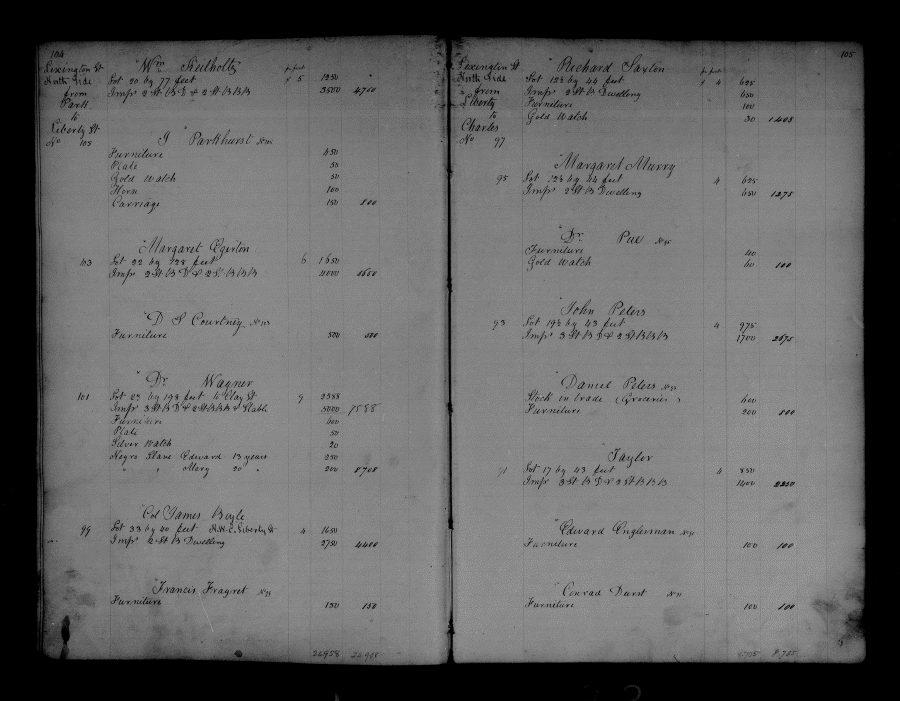 104
Lexington St
North Side
from
Park
to
Liberty St
No 105
"Wm Keilholtz
pr feet
Lot 20 by 77 feet " 5 1250 "
Imps 2 St B D & 2 St B B B 3500 4700
"I Parkhurst No 105
Furniture 450
Plate 50
Gold Watch 50
Horse 100
Carriage 150 800
"Margaret Egerton
103 Lot 22 by 128 feet 6 1650
Imps 2 St B D & 2 St B B B 4000 5650
"D S Courtney No 103
Furniture 500 500
"Dr Wagner
101 Lot 23 by 198 feet to Clay St 9 2588
Imps 3 St B D & 2 St B B B & Stable 5000 7588
Furniture 600
Plate 50
Silver Watch 20
Negro Slave Edward 13 years 250
" " Mary 20 " 200 8708
"Col James Boyle
99 Lot 33 by 40 feet N.W.C. Liberty St 4 1650
Imps 2 St B Dwelling 2750 4400
"Francis Fragret No 99
Furniture 150 150
105
Lexington St
North Side
from
Liberty
to
Charles
No 97
"Richard Saxton
pr feet
Lot 12½ by 44 feet " 4 625
Imps 2 St B Dwelling 650
Furniture 100
Gold Watch 30 1405
"Margaret Murry
95 Lot 12½ by 44 feet 4 625
Imps 2 St B Dwelling 650 1275
"Dr Pue No 95
Furniture 40
Gold Watch 60 100
"John Peters
93 Lot 19½ by 43 feet 4 975
Imps 3 St B D & 2 St B B B 1700 2675
"Daniel Peters No 93
Stock in trade (Groceries) 600
Furniture 200 800
"Taylor
91 Lot 17 by 43 feet 4 850
Imps 3 St B D & 2 St B B B 1400 2250
"Edward Englerman No 91
Furniture 100 100
"Conrad Durst No 91
Furniture 100 100